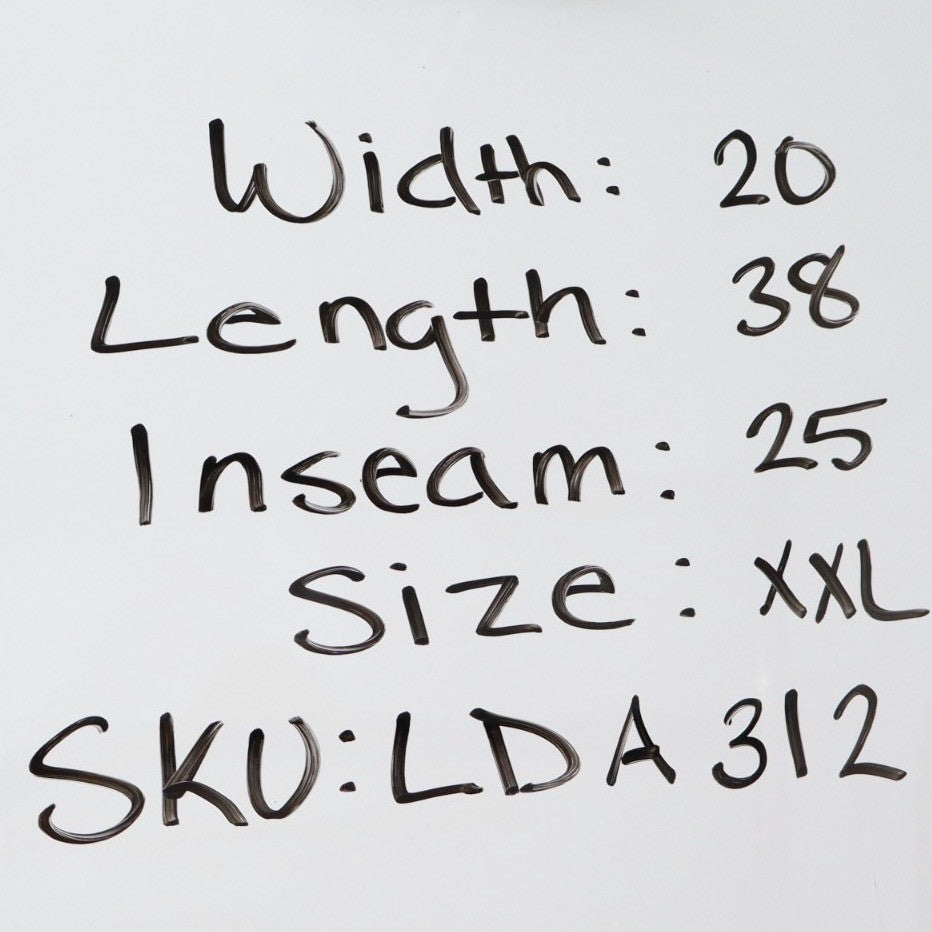 Width: 20
Length: 38
Inseam: 25
Size: XXL
SKU: LDA312